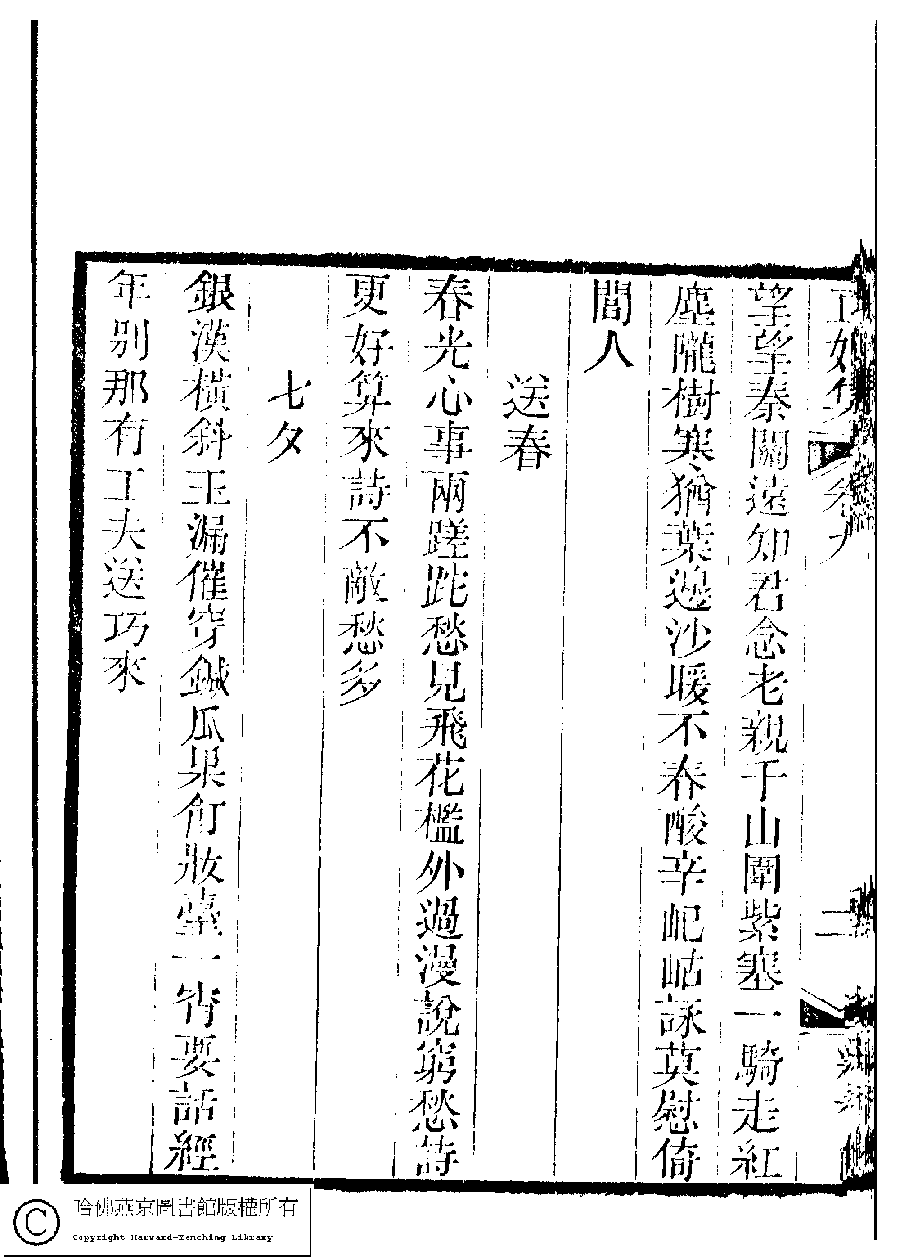 望望秦關遠知君念老親千山圍紫塞一騎走紅
塵隴樹寒猶葉邊沙暖不春酸辛屺岵詠莫慰倚
閭人
送春
春光心事兩蹉跎愁見飛花檻外過漫說窮愁詩
更好算來詩不敵愁多
七夕
銀漢橫斜玉漏催穿鍼瓜果飣妝臺一宵要話經
年別那有工夫送巧來
哈佛燕京圖書館版權所有
Copyright Harvard-Yenching Library